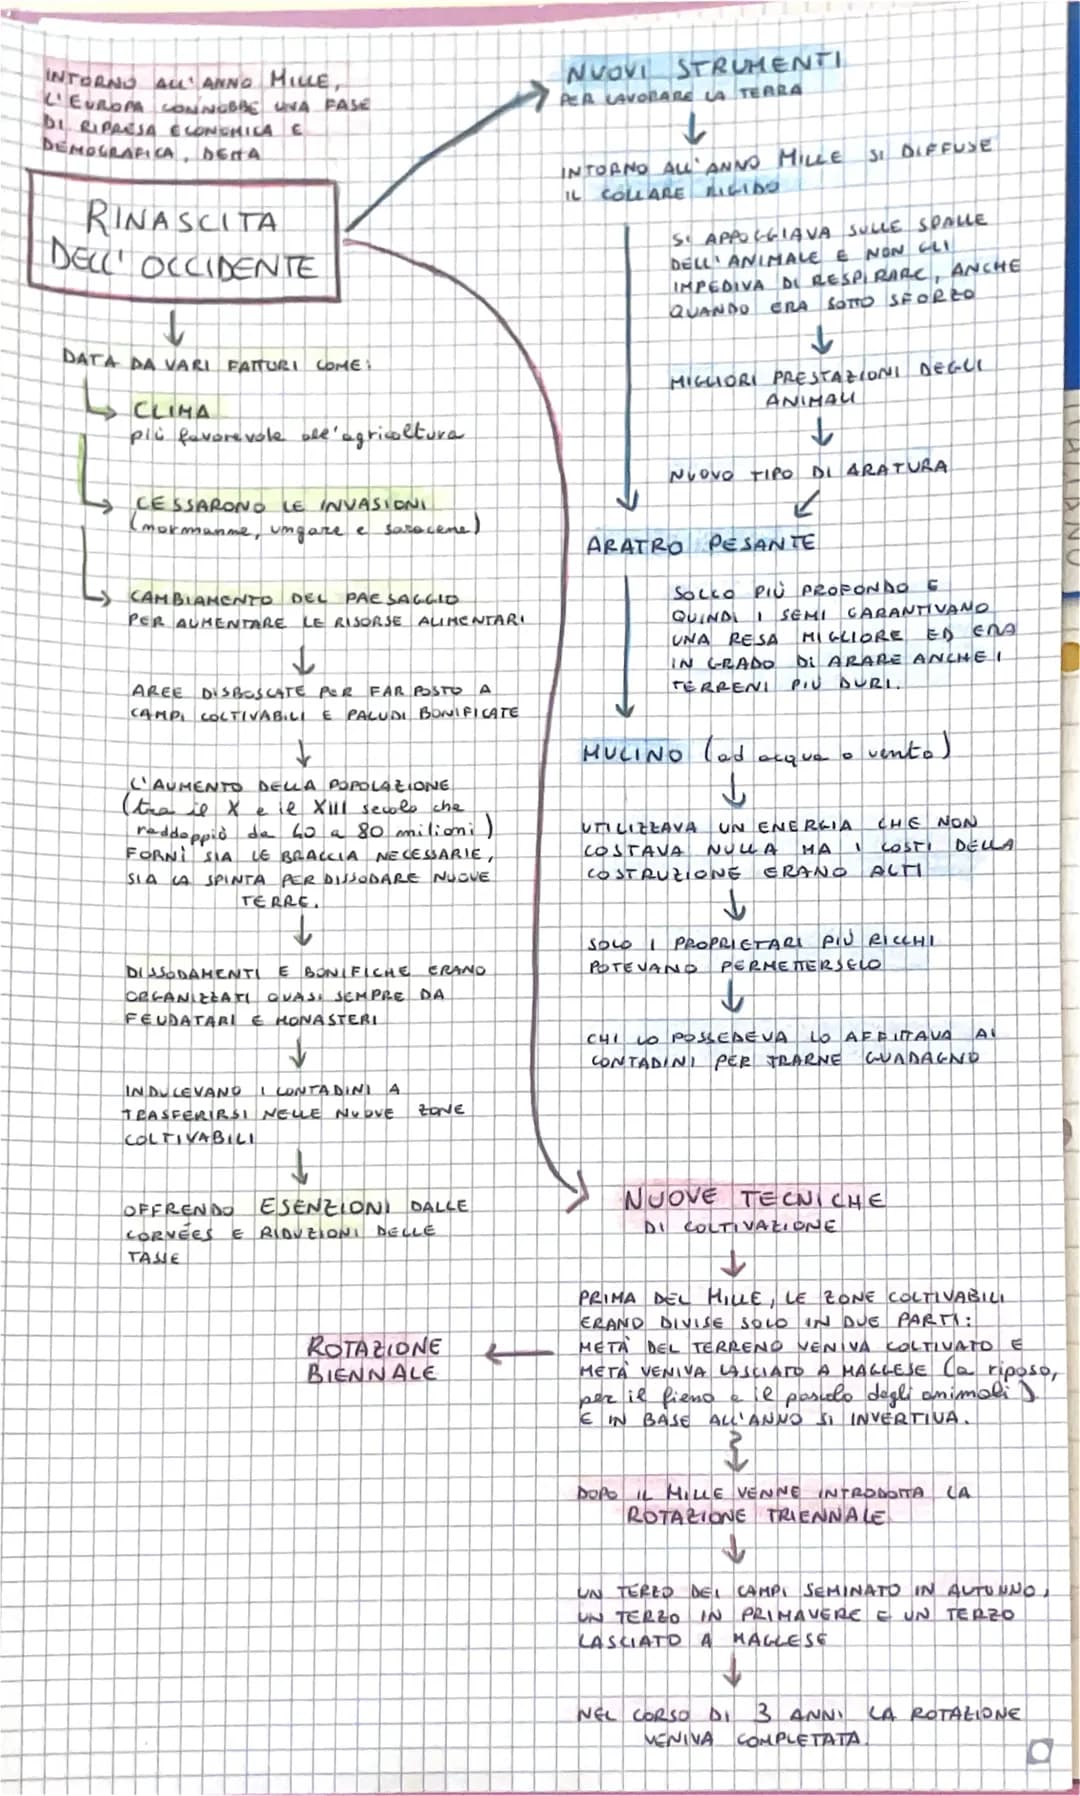 INTORNO ALL'ANNO MILLE,
L'EUROPA CONNOBBE UNA FASE
DI RIPRESA ECONOMICA E
DEMOGRAFICA, DETTA
RINASCITA
DELL'OCCIDENTE
DATA DA VARI FATTURI COME:
CLIMA
più favorevole all'agricoltura
CESSARONO LE INVASIONI
(normanne, ungare e saracene)
CAMBIAMENTO DEL PAESAGGIO
PER AUMENTARE LE RISORSE ALIMENTARI
AREE DISBOSCATE PER FAR POSTO A
CAMPI COLTIVABILI E PALUDI BONIFICATE
L'AUMENTO DELLA POPOLAZIONE
(tra il X e il XIII secolo che
raddoppiò da 40 a 80 milioni)
FORNÌ SIA LE BRACCIA NECESSARIE,
SIA LA SPINTA PER DISSODARE NUOVE
TERRE.
DISSODAMENTI E BONIFICHE ERANO
ORGANIZZATI QUASI SEMPRE DA
FEUDATARI E MONASTERI
INDUCEVANO I CONTADINI A
TRASFERIRSI NELLE NUOVE ZONE
COLTIVABILI
OFFRENDO ESENZIONI DALLE
CORVÉES E RIDUZIONI DELLE
TASSE
NUOVI STRUMENTI
PER LAVORARE LA TERRA
INTORNO ALL'ANNO MILLE SI DIFFUSE
IL COLLARE RIGIDO
SI APPOGGIAVA SULLE SPALLE
DELL'ANIMALE E NON GLI
IMPEDIVA DI RESPIRARE, ANCHE
QUANDO ERA SOTTO SFORZO
MIGLIORI PRESTAZIONI DEGLI
ANIMALI
NUOVO TIPO DI ARATURA
ARATRO PESANTE
SOLCO PIÙ PROFONDO E
QUINDI I SEMI GARANTIVANO
UNA RESA MIGLIORE ED ERA
IN GRADO DI ARARE ANCHE I
TERRENI PIÙ DURI.
MULINO (ad acqua o vento)
UTILIZZAVA UN ENERGIA CHE NON
COSTAVA NULLA MA I COSTI DELLA
COSTRUZIONE ERANO ALTI
SOLO I PROPRIETARI PIÙ RICCHI
POTEVANO PERMETTERSELO
CHI LO POSSEDEVA LO AFFITTAVA AI
CONTADINI PER TRARNE GUADAGNO
NUOVE TECNICHE
DI COLTIVAZIONE
PRIMA DEL MILLE, LE ZONE COLTIVABILI
ERANO DIVISE SOLO IN DUE PARTI:
METÀ DEL TERRENO VENIVA COLTIVATO E
METÀ VENIVA LASCIATO A MAGGESE (a riposo,
per il fieno e il pascolo degli animali)
E IN BASE ALL'ANNO SI INVERTIVA.
ROTAZIONE
BIENNALE
DOPO IL MILLE VENNE INTRODOTTA LA
ROTAZIONE TRIENNALE
UN TERZO DEI CAMPI SEMINATO IN AUTUNNO,
UN TERZO IN PRIMAVERE E UN TERZO
LASCIATO A MAGGESE
NEL CORSO DI 3 ANNI LA ROTAZIONE
VENIVA COMPLETATA.